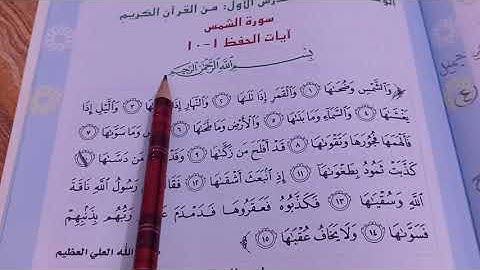 الدرس الأول: من القرآن الكريم
سورة الشمس
آيات الحفظ ١-١٠
بِسْمِ اللَّهِ الرَّحْمَٰنِ الرَّحِيمِ
وَالشَّمْسِ وَضُحَىٰهَا ١ وَالْقَمَرِ إِذَا تَلَىٰهَا ٢ وَالنَّهَارِ إِذَا ٣ وَالَّيْلِ إِذَا
يَغْشَىٰهَا ٤ وَالسَّمَاءِ وَمَا بَنَىٰهَا ٥ وَالْأَرْضِ وَمَا طَحَىٰهَا ٦ وَمَا سَوَّىٰهَا ٧
فَأَلْهَمَهَا فُجُورَهَا وَتَقْوَىٰهَا ٨ قَدْ أَفْلَحَ مَن زَكَّىٰهَا ٩ وَقَدْ مَن دَسَّىٰهَا ١٠
كَذَّبَتْ ثَمُودُ بِطَغْوَىٰهَا ١١ إِذِ انۢبَعَثَ أَشْقَىٰهَا ١٢ فَقَالَ رَسُولُ اللَّهِ نَاقَةَ
اللَّهِ وَسُقْيَٰهَا ١٣ فَكَذَّبُوهُ فَعَقَرُوهَا فَدَمْدَمَ رَبُّهُم بِذَنۢبِهِمْ
فَسَوَّىٰهَا ١٤ وَلَا يَخَافُ عُقْبَٰهَا ١٥
الله العلي العظيم